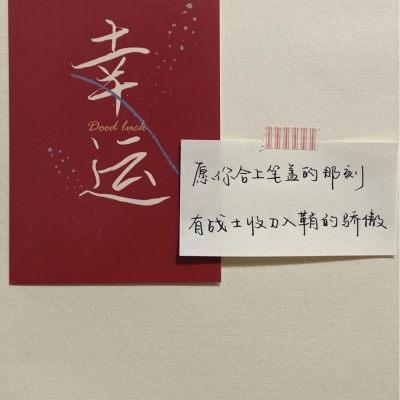 幸运
Dood luck
愿你合上笔盖的那刻
有战士收刀入鞘的骄傲